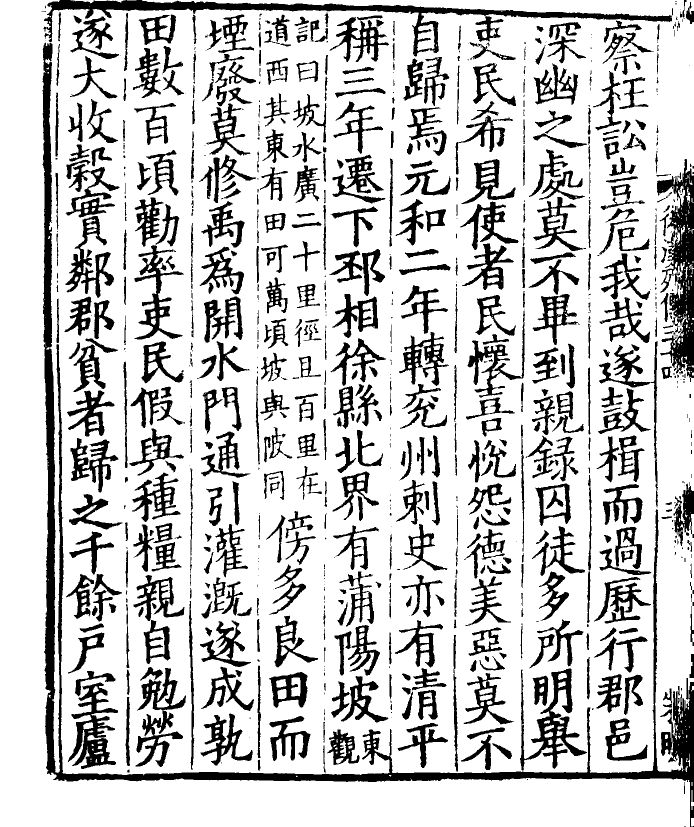 察枉訟豈危我哉遂鼓楫而過歷行郡邑
深幽之處莫不畢到親錄囚徒多所明舉
吏民希見使者民懷喜悅怨德美惡莫不
自歸焉元和二年轉兖州刺史亦有清平
稱三年遷下邳相徐縣北界有蒲陽坡東觀
記曰坡水廣二十里徑且百里在道西其東有田可萬頃坡與陂同傍多良田而
堙廢莫修禹爲開水門通引灌溉遂成孰
田數百頃勸率吏民假與種糧親自勉勞
遂大收穀實鄰郡貧者歸之千餘戶室廬